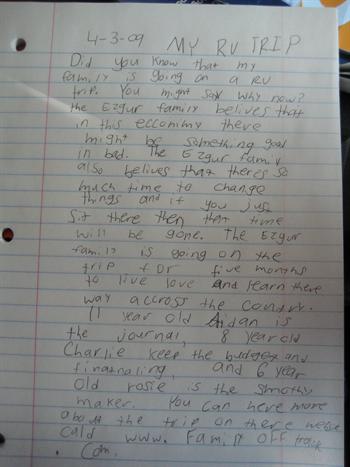 4-3-09 MY RV TRIP
Did you know that my
family is going on a RV
trip. You might say why now?
the Ezgur family belives that
in this eccommy there
might be something good
in bad. The Ezgur family
also belives that theres so
much time to change
things and if you jus
sit there then that time
will be gone. The Ezgur
family is going on the
trip for five months
to live love and learn there
way accross the contry.
11 year old Aidan is
the journal, 8 year old
Charlie keep the budget and
finatnaling, and 6 year
old rosie is the smothy
maker. You can here more
about the trip on there website
cald www. Family off track
. Com.